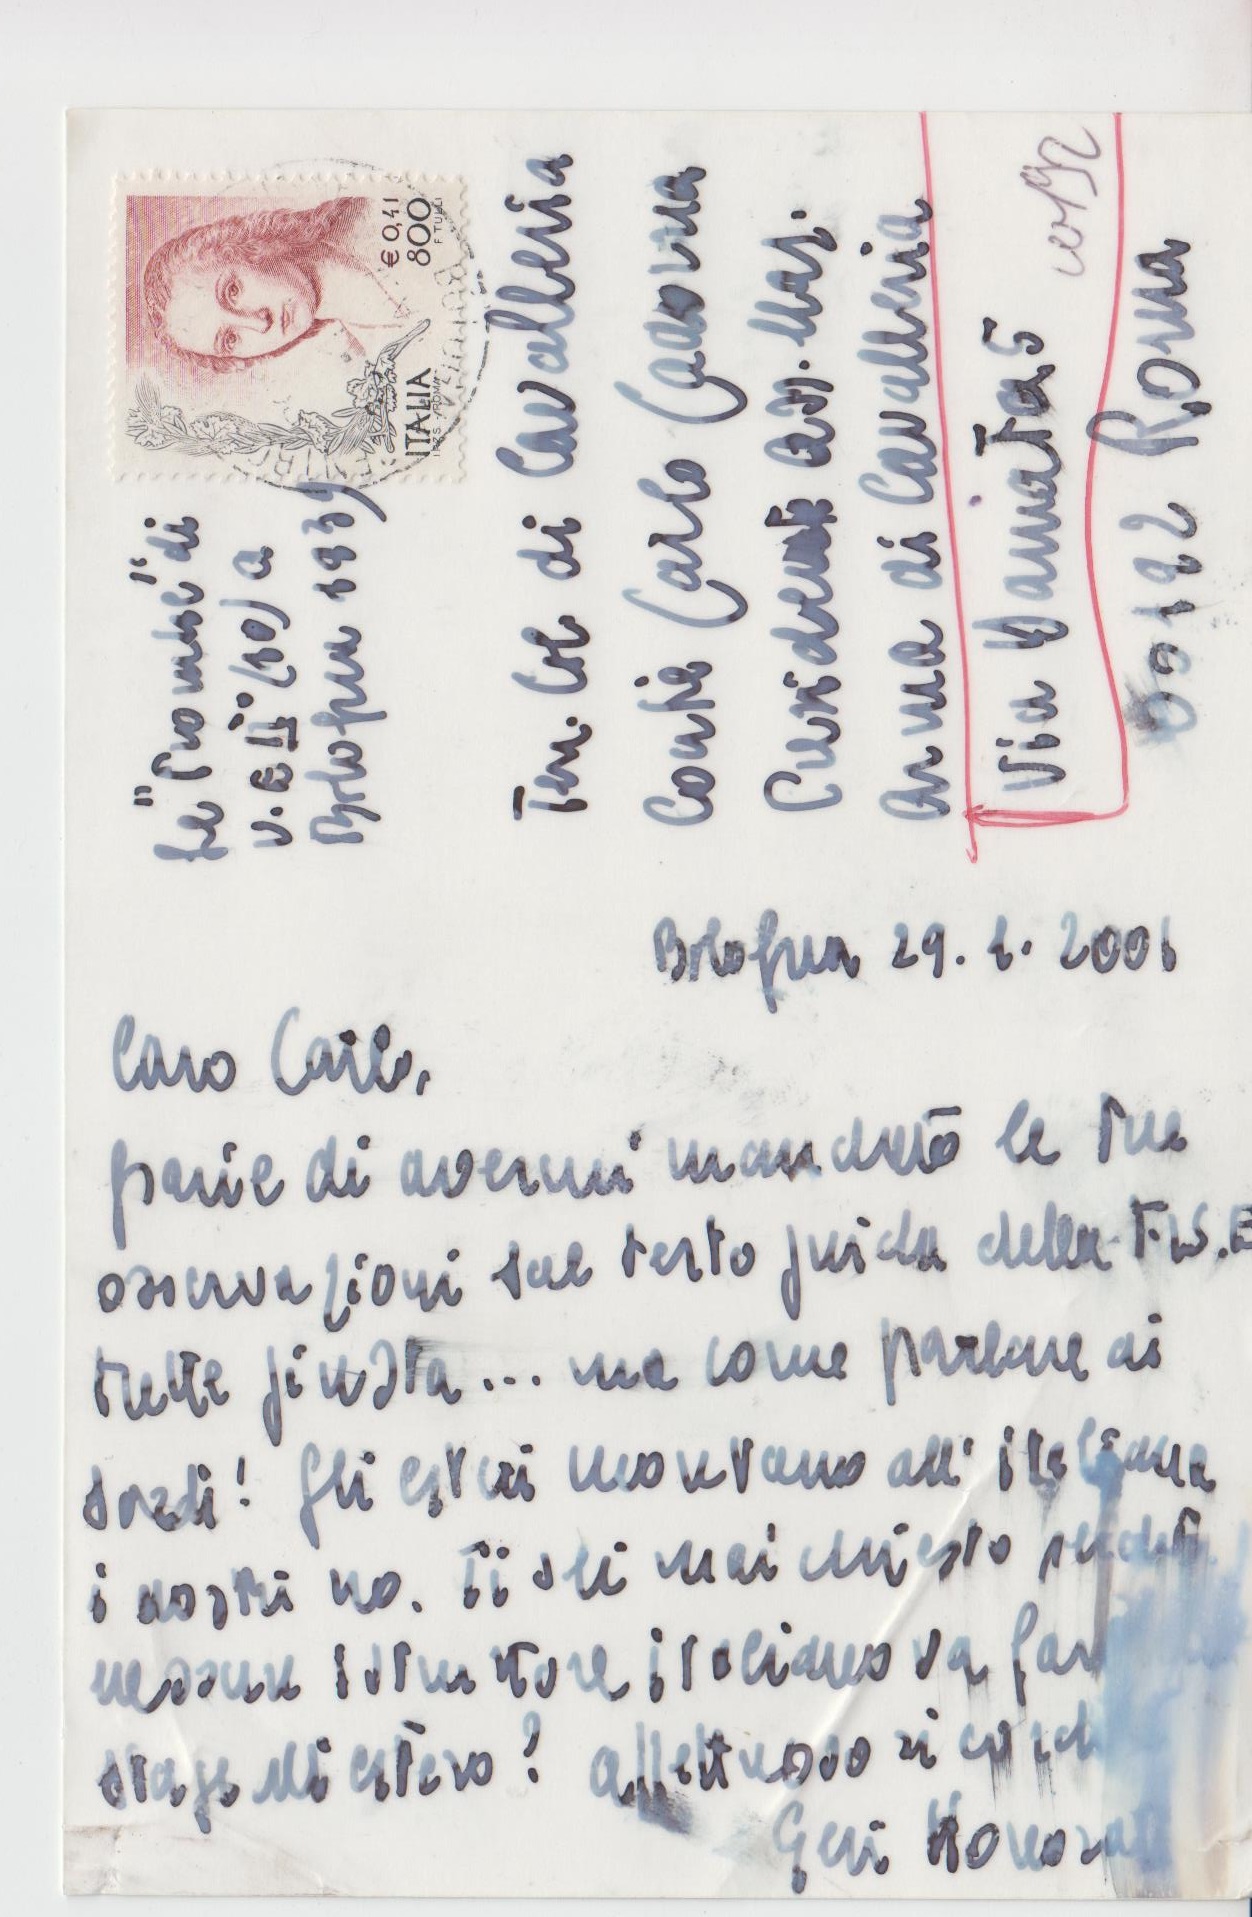 € 0,41
800
F. TULLI
ITALIA
I.P.Z.S. ROMA
Le "Piombe" di
V. E. II° (10) a
Bologna 1939
Ten. Col. di Cavalleria
Conte Carlo Cadorna
Presidente Ass. Naz.
Arma di Cavalleria
Via Damiata 5
00192 Roma
Bologna 29. 1. 2001
Caro Carlo,
grazie di avermi mandato le tue
osservazioni sul testo guida della F.I.S.E
tutte giuste... ma come parlare ai
sordi! Gli esteri montano all'italiana
i nostri no. Ti sei mai chiesto perché
nessun istruttore italiano va far
stage all'estero? Affettuoso ricordo
Geri